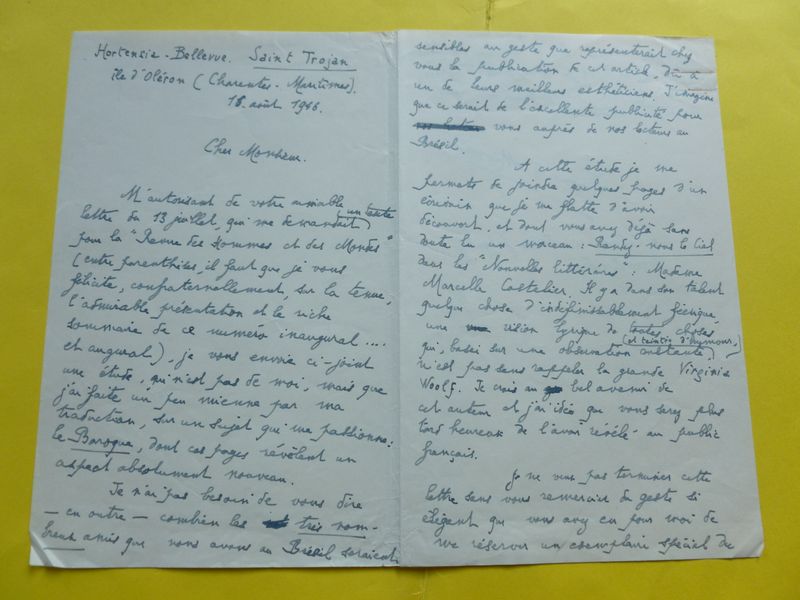 Hortensia-Bellevue. Saint Trojan
île d'Oléron (Charentes-Maritimes).
18 août 1946.
Cher Monsieur.
M'autorisant de votre aimable
lettre du 13 juillet, qui me demandait un texte
pour la "Revue des Hommes et des Mondes"
(entre parenthèses, il faut que je vous
félicite, confraternellement, sur la tenue,
l'admirable présentation et le riche
sommaire de ce numéro inaugural ....
et augural), je vous envoie ci-joint
une étude, qui n'est pas de moi, mais que
j'ai faite un peu mienne par ma
traduction, sur un sujet qui me passionne:
le Baroque, dont ces pages révèlent un
aspect absolument nouveau.
Je n'ai pas besoin de vous dire
- en outre - combien les très nom-
breux amis que nous avons au Brésil seraient
sensibles au geste que représenterait chez
vous la publication de cet article, dû à
un de leurs meilleurs esthéticiens. J'imagine
que ce serait de l'excellente publicité pour
vous auprès de nos lecteurs au
Brésil.
A cette étude je me
permets de joindre quelques pages d'un
écrivain que je me flatte d'avoir
découvert, et dont vous avez déjà sans
doute lu un morceau: Rendez-nous le Ciel
dans les "Nouvelles littéraires": Madame
Marcelle Castelier. Il y a dans son talent
quelque chose d'indéfinissablement féerique,
une vision lyrique de toutes choses
(et teintée d'humour,)
qui, basée sur une observation constante
n'est pas sans rappeler la grande Virginia
Woolf. Je crois au bel avenir de
cet auteur et j'ai idée que vous serez plus
tard heureux de l'avoir révélé au public
français.
Je ne veux pas terminer cette
lettre sans vous remercier du geste si
élégant que vous avez eu pour moi de
me réserver un exemplaire spécial de